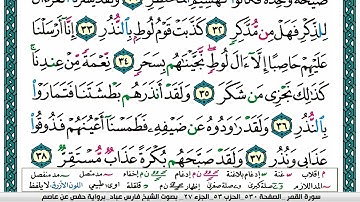 صَيْحَةً وَٰحِدَةً فَكَانُوا۟ كَهَشِيمِ ٱلْمُحْتَظِرِ ٣١ وَلَقَدْ يَسَّرْنَا ٱلْقُرْءَانَ
لِلذِّكْرِ فَهَلْ مِن مُّدَّكِرٍ ٣٢ كَذَّبَتْ قَوْمُ لُوطٍۭ بِٱلنُّذُرِ ٣٣ إِنَّآ أَرْسَلْنَا
عَلَيْهِمْ حَاصِبًا إِلَّآ ءَالَ لُوطٍ نَّجَّيْنَٰهُم بِسَحَرٍ ٣٤ نِّعْمَةً مِّنْ عِندِنَا
كَذَٰلِكَ نَجْزِى مَن شَكَرَ ٣٥ وَلَقَدْ أَنذَرَهُم بَطْشَتَنَا فَتَمَارَوْا۟
بِٱلنُّذُرِ ٣٦ وَلَقَدْ رَٰوَدُوهُ عَن ضَيْفِهِۦ فَطَمَسْنَآ أَعْيُنَهُمْ فَذُوقُوا۟
عَذَابِى وَنُذُرِ ٣٧ وَلَقَدْ صَبَّحَهُم بُكْرَةً عَذَابٌ مُّسْتَقِرٌّ ٣٨
سورة القمر الصفحة ٥٣٠ الحزب ٥٣ الجزء ٢٧ بصوت الشيخ فارس عباد برواية حفص عن عاصم